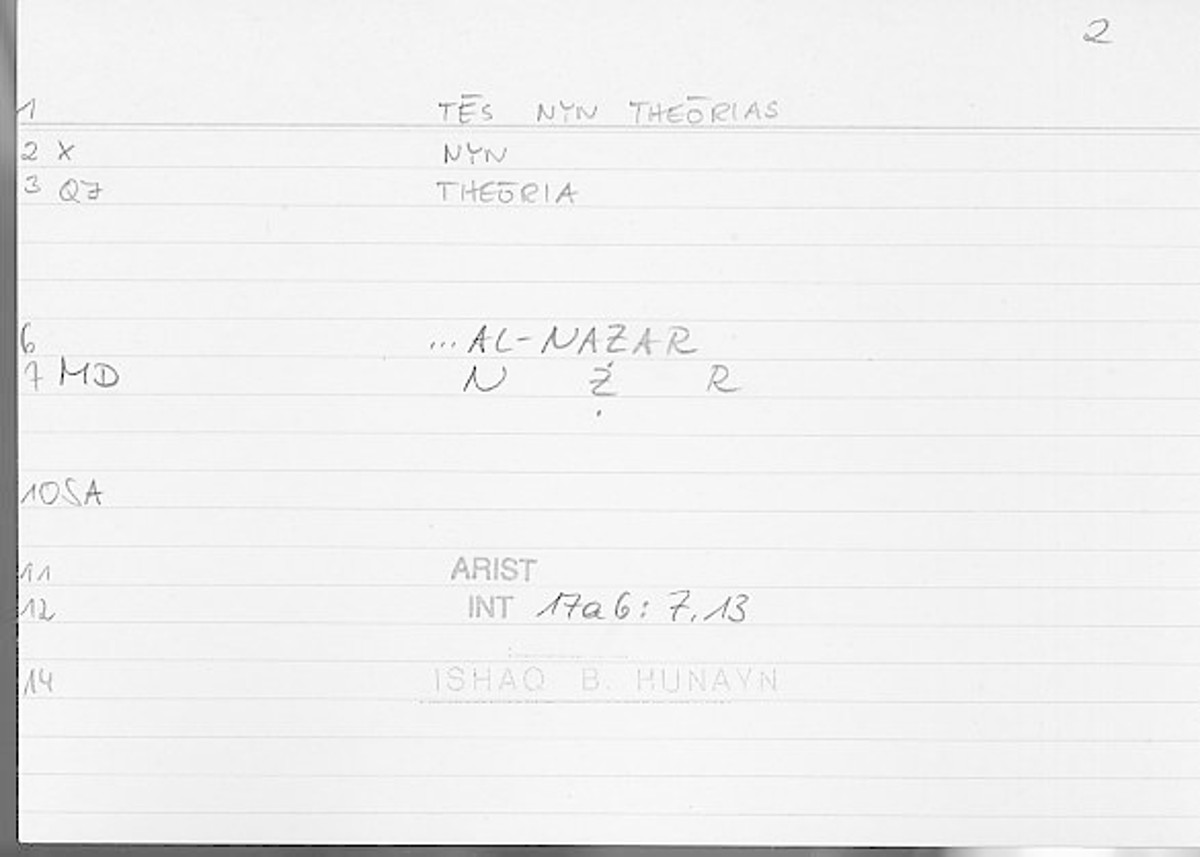 2
1 TĒS NYN THEŌRIAS
2 X NYN
3 QJ THEŌRIA
6 ...AL-NAẒAR
7 MD N Ẓ R
10 SA
11 ARIST
12 INT 17a6: 7,13
14 ISHAQ B. HUNAYN